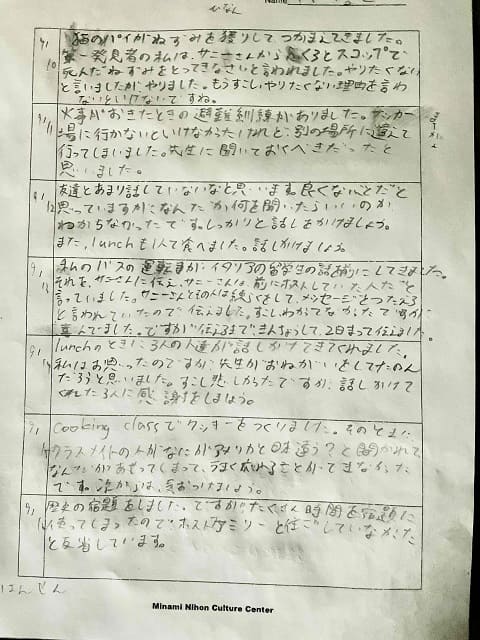 Name
ひなん
9/10 猫のパイがねずみを狩りしてつかまえてきました。
第一発見者の私は、サニーさんから ふくろとスコップで
死んだねずみをとってきなさいと言われました。やりたくない
と言いましたがやりました。もうすこしやりたくない理由を言わ
ないといけないですね。
9/11 火事がおきたときの避難訓練がありました。サッカー
場に行かないといけなかったけれど、別の場所に違えて
行ってしまいました。先生に聞いておくべきだったと
思いました。
9/12 友達とあまり話していないなと思います。良くないことだと
思っていますが、なんだか何を聞いたらいいのか
わからなかったです。しっかりと話しをかけましょう。
また、lunchも1人で食べました。話しかけましょう。
9/13 私のバスの運転手が、イタリアの留学生の話を前にしてきました。
それを、サニーさんに伝え、サニーさんは、前にホストしていた人だと
言っていました。サニーさんとその人は
メッセージをつたえろ
と言われていたので伝えました。すこし
喜んでました。ですが伝えるまで、きんちょうして、2日まって伝えました。
9/14 lunchのときに、3人の人達が話しかけてきてくれました。
私はお思ったのですが先生がおねがいをしてたのん
だろうと思いました。すこし悲しかったですが、話しかけて
くれた3人に感謝をしましょう。
9/ cooking classでクッキーをつくりました。そのときに、
クラスメイトの人がなにがアメリカと日本違う？と聞かれて
なんだかあせってしまって、うまく応わることができなかった
です。次からは、気おつけましょう。
9/ 歴史の宿題をしました。ですがたくさん時間を宿題に
使ってしまったのでホストファミリーと過ごしていなかった
と反省しています。
はんせい
Minami Nihon Culture Center